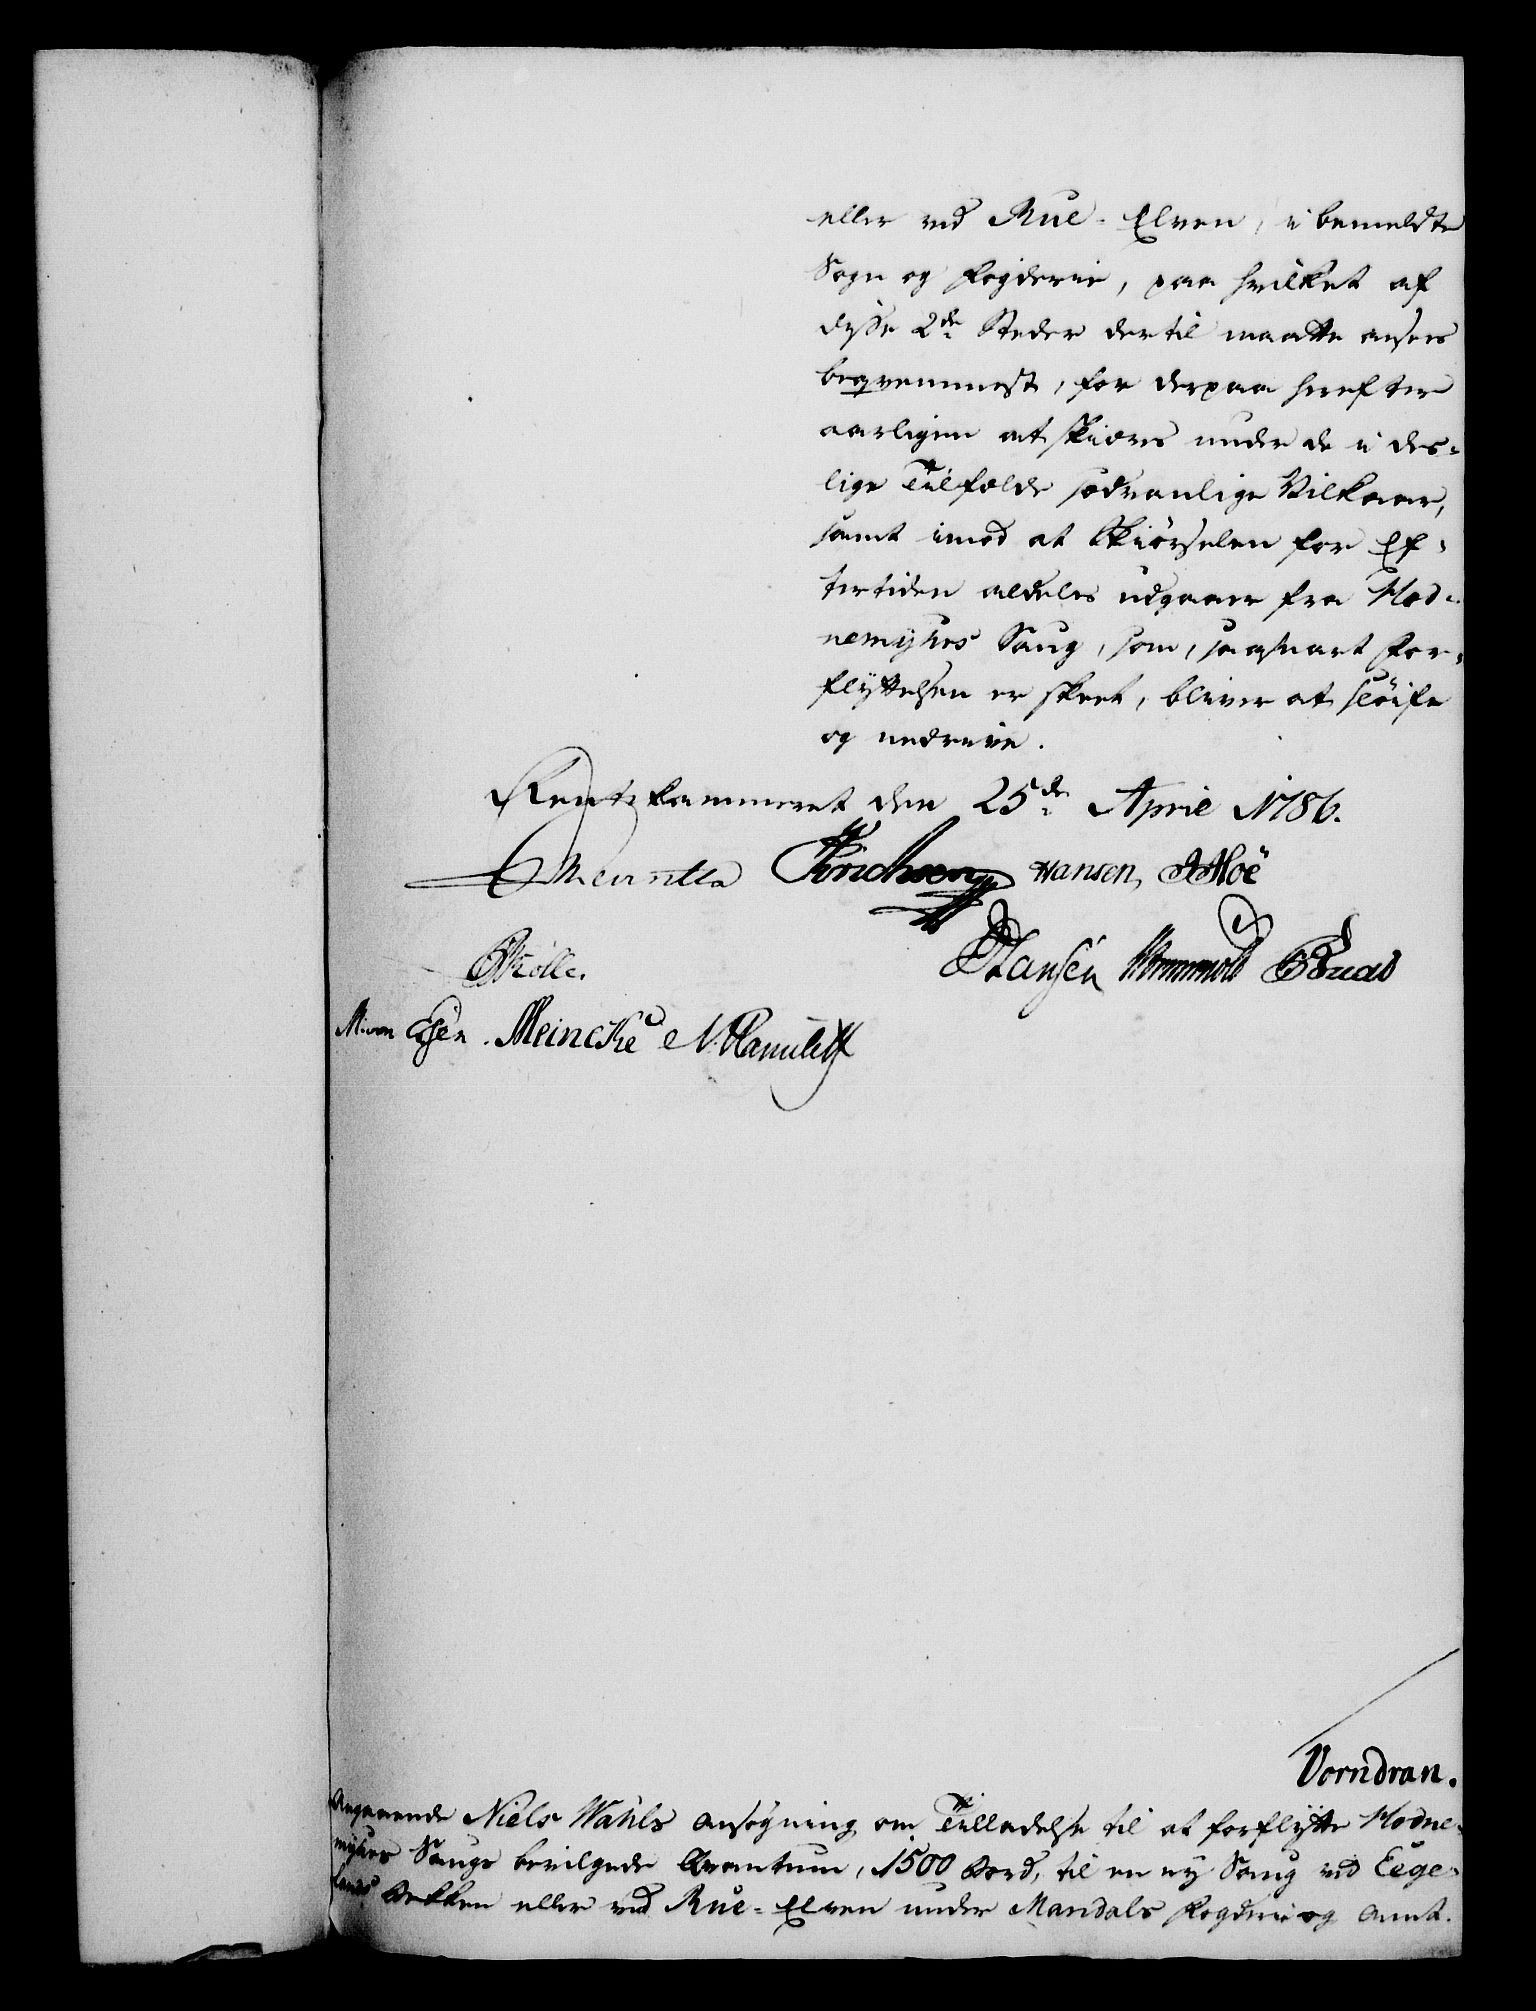 eller ved Rue-Elven, i bemeldte
Sogn og Fogderie, paa hvilket af
disse 2de Steder dertil maatte ansees
beqvemmest, for derpaa herefter
aarligen at skiæres under de i des-
lige Tilfælde sædvanlige Vilkaar,
samt imod at Skiørselen for Ef-
tertiden aldeles udgaaer fra Hod-
nemyhrs Saug, som, saasnart For-
flyttelsen er skeet, bliver at sløife
og nedrive.
Rentekammeret den 25de April 1786.
Erichsen Hansen, Moë
Rolle. Hansen
Meincke
Vorndran.
Angaaende Niels Wahls Ansøgning om Tilladelse til at forflytte Hodne-
myhrs Saugs bevilgede Qvantum, 1500 Bord, til en ny Saug ved Eege-
lands Bekken eller ved Rue-Elven under Mandals Fogderie og Amt.